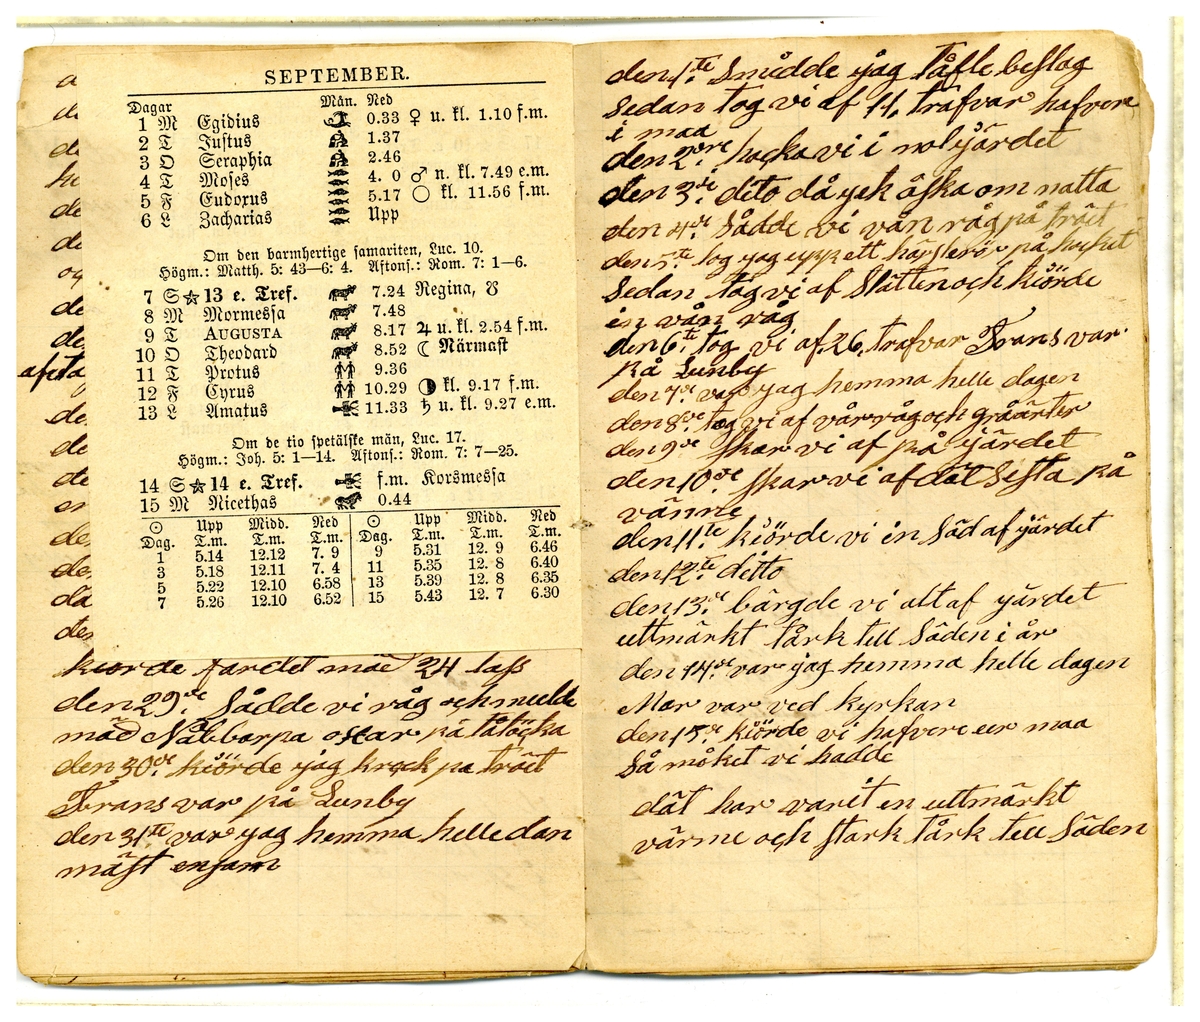 SEPTEMBER.
Dagar Mån. Ned
1 M Egidius 0.33 ♀ u. kl. 1.10 f.m.
2 T Justus 1.37
3 O Seraphia 2.46
4 T Moses 4. 0 ♂ n. kl. 7.49 e.m.
5 F Eudoxus 5.17 ○ kl. 11.56 f.m.
6 L Zacharias Upp
Om den barmhertige samariten, Luc. 10.
Högm.: Matth. 5: 43—6: 4. Aftons.: Rom. 7: 1—6.
7 S ☆ 13 e. Tref. 7.24 Regina, ☋
8 M Mormessa 7.48
9 T AUGUSTA 8.17 ♃ u. kl. 2.54 f.m.
10 O Theodard 8.52 ☾ Närmast
11 T Protus 9.36
12 F Cyrus 10.29 ◑ kl. 9.17 f.m.
13 L Amatus 11.33 ♄ u. kl. 9.27 e.m.
Om de tio spetälske män, Luc. 17.
Högm.: Joh. 5: 1—14. Aftons.: Rom. 7: 7—25.
14 S ☆ 14 e. Tref. f.m. Korsmessa
15 M Nicethas 0.44
☉ Upp Midd. Ned ☉ Upp Midd. Ned
Dag. T.m. T.m. T.m. Dag. T.m. T.m. T.m.
1 5.14 12.12 7. 9 9 5.31 12. 9 6.46
3 5.18 12.11 7. 4 11 5.35 12. 8 6.40
5 5.22 12.10 6.58 13 5.39 12. 8 6.35
7 5.26 12.10 6.52 15 5.43 12. 7 6.30
kiörde jardet mäd 24 lass
den 29de Sådde vi råg och mulde
mäd Nåbbarpa oxar på tåtäcka
den 30de kiörde jag kräck pa träit
Frans var på Lunby
den 31te var jag hemma helle dan
mäst ensam
den 1te Smidde jag tåfle beslag
Sedan tog vi af 11 trafvar hafvere
i maa
den 2dre hacka vi i nol järdet
den 3die dito då gek åska om natta
den 4de Sådde vi vån råg på träit
den 5te tog jag upp ett på
Sedan tog vi af Slätten och kiörde
in vån råg
den 6te tog vi af 26 trafvar Frans var
på Lunby
den 7de var jag hemma helle dagen
den 8de tog vi af vårråg och gråärter
den 9de Skar vi af på järdet
den 10de Skar vi af dät Sista på
vänne
den 11te kiörde vi in Säd af järdet
den 12te ditto
den 13de bärgde vi alt af järdet
uttmärkt tårk tell Säden i år
den 14de var jag hemma helle dagen
Mor var ved kyrkan
den 15de kiörde vi hafvere er maa
Så möket vi hadde
dät har varit en uttmärkt
värme och stark tårk tell Säden